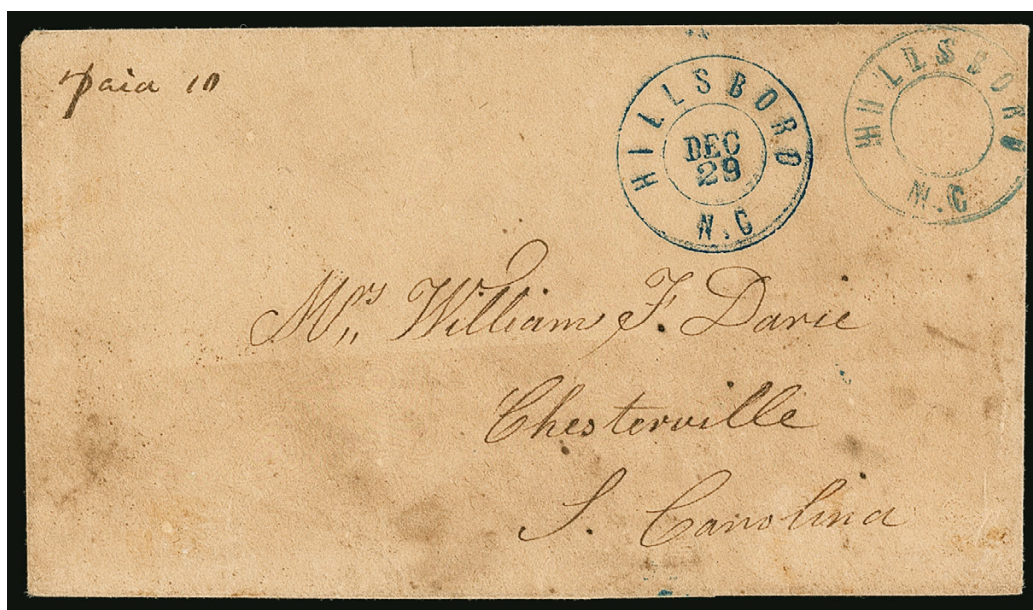 Paid 10
HILLSBORO
DEC
29
N.C
HILLSBORO
N.C
Mrs,, William F. Davie
Chesterville
S. Carolina